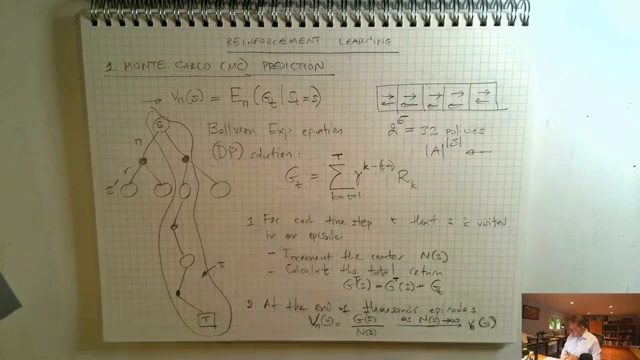 REINFORCEMENT LEARNING
1. MONTE-CARLO (MC) PREDICTION
→ V_π(s) = E_π(G_t | S_t = s)
Bellman Exp. equation
(DP) solution:
G_t = Σ_{k=t+1}^{T} γ^{k-(t+1)} R_k
2^5 = 32 policies
|A|^{|S|} ←
S
π
r
s'
τ
T
1. For each time step t that s is visited
in an episode
- Increment the counter N(s)
- Calculate the total return
G^T(s) = G^T(s) + G_t
2. At the end of thousands episodes
V_π(s) = G(s) / N(s) as N(s) → ∞ V_π(s)